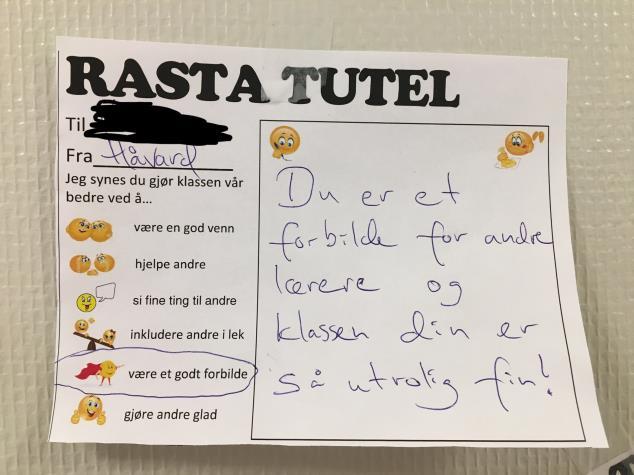 RASTA TUTEL
Til
Fra Håvard
Jeg synes du gjør klassen vår
bedre ved å...
være en god venn
hjelpe andre
si fine ting til andre
inkludere andre i lek
være et godt forbilde
gjøre andre glad
Du er et
forbilde for andre
lærere og
klassen din er
så utrolig fin!